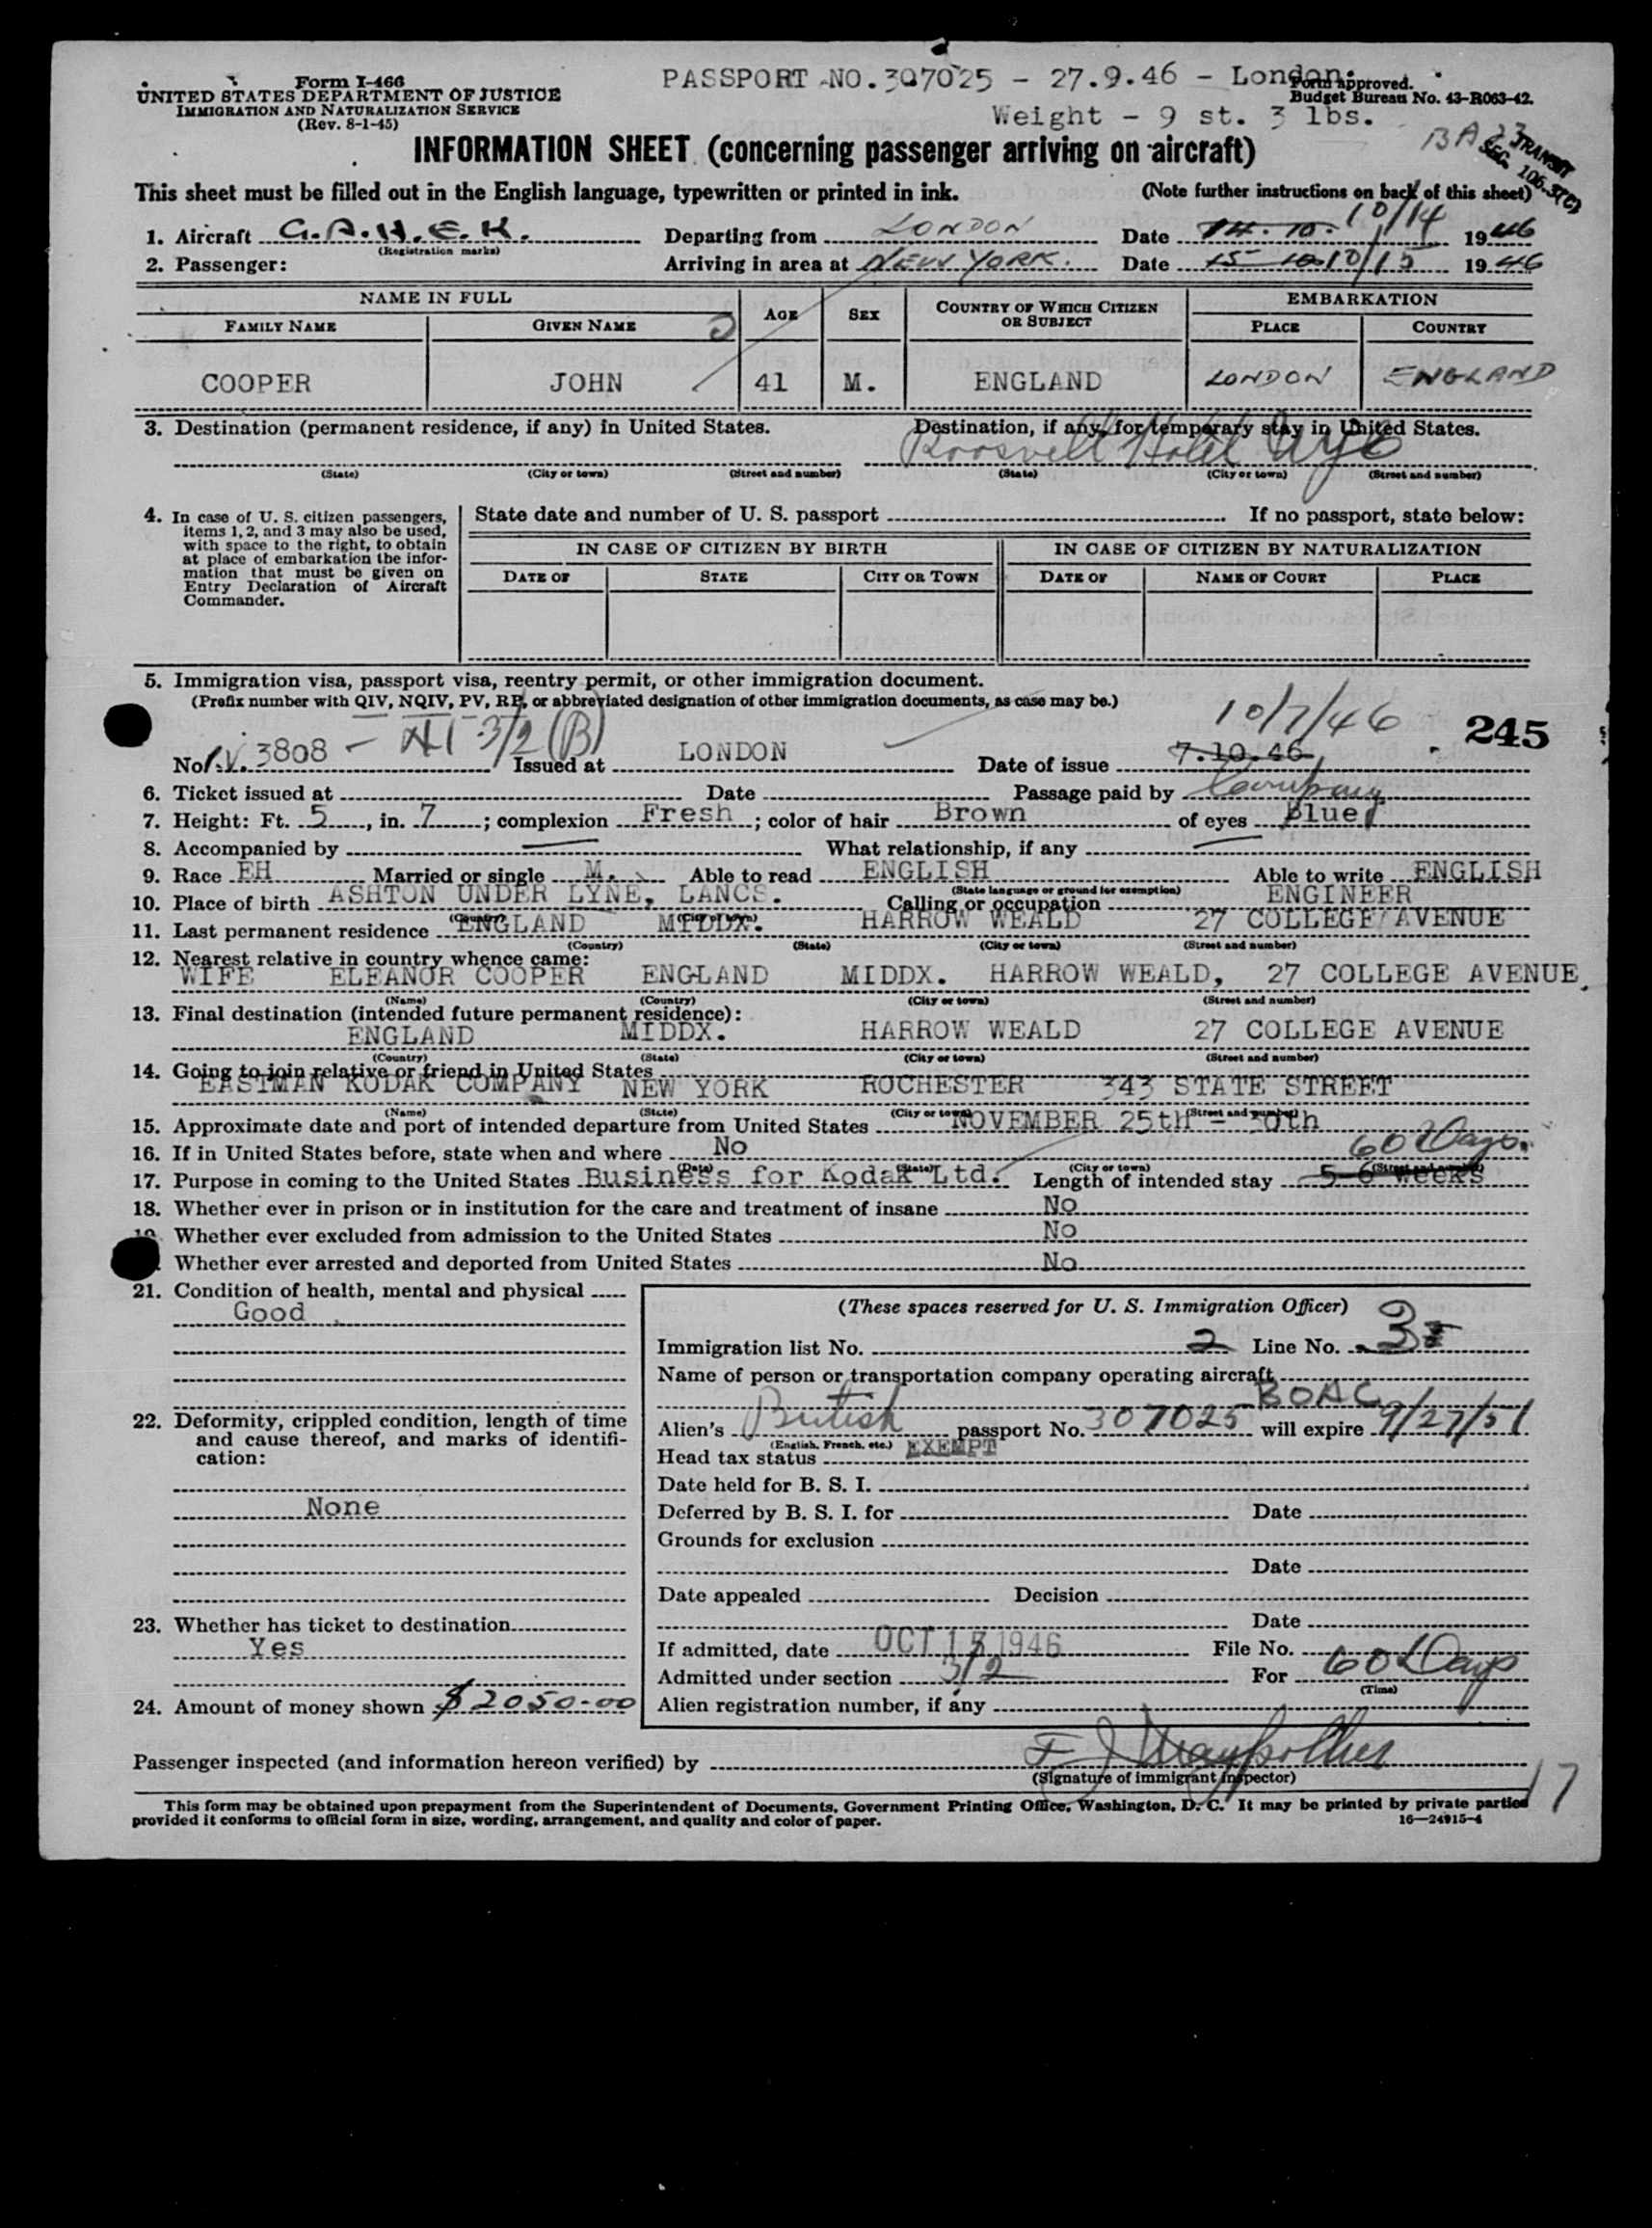 Form I-466
UNITED STATES DEPARTMENT OF JUSTICE
IMMIGRATION AND NATURALIZATION SERVICE
(Rev. 8-1-45)
PASSPORT NO. 307025 - 27.9.46 - London.
Form approved.
Budget Bureau No. 43-R063-42.
Weight - 9 st. 3 lbs.
BA 23
TRANSIT
SEC. 106.3(C)
INFORMATION SHEET (concerning passenger arriving on aircraft)
This sheet must be filled out in the English language, typewritten or printed in ink. (Note further instructions on back of this sheet)
1. Aircraft G.A.H.E.K. Departing from LONDON Date 14.10. 10/14 1946
(Registration marks)
2. Passenger: Arriving in area at NEW YORK. Date 15 10 10/15 1946
NAME IN FULL AGE SEX COUNTRY OF WHICH CITIZEN OR SUBJECT EMBARKATION
FAMILY NAME GIVEN NAME PLACE COUNTRY
COOPER JOHN 41 M. ENGLAND LONDON ENGLAND
3. Destination (permanent residence, if any) in United States. Destination, if any, for temporary stay in United States.
Roosvelt Hotel NYC
(State) (City or town) (Street and number) (State) (City or town) (Street and number)
4. In case of U. S. citizen passengers, items 1, 2, and 3 may also be used, with space to the right, to obtain at place of embarkation the information that must be given on Entry Declaration of Aircraft Commander.
State date and number of U. S. passport If no passport, state below:
IN CASE OF CITIZEN BY BIRTH IN CASE OF CITIZEN BY NATURALIZATION
DATE OF STATE CITY OR TOWN DATE OF NAME OF COURT PLACE
5. Immigration visa, passport visa, reentry permit, or other immigration document.
(Prefix number with QIV, NQIV, PV, RP, or abbreviated designation of other immigration documents, as case may be.)
10/7/46 245
No. P.V. 3808 - 3/2 (B) Issued at LONDON Date of issue 7.10.46
6. Ticket issued at Date Passage paid by Company
7. Height: Ft. 5, in. 7; complexion Fresh; color of hair Brown of eyes Blue
8. Accompanied by — What relationship, if any —
9. Race EH Married or single M. Able to read ENGLISH Able to write ENGLISH
(State language or ground for exemption)
10. Place of birth ASHTON UNDER LYNE, LANCS. Calling or occupation ENGINEER
(Country) (City or town)
11. Last permanent residence ENGLAND MIDDX. HARROW WEALD 27 COLLEGE AVENUE
(Country) (State) (City or town) (Street and number)
12. Nearest relative in country whence came:
WIFE ELEANOR COOPER ENGLAND MIDDX. HARROW WEALD, 27 COLLEGE AVENUE.
(Name) (Country) (City or town) (Street and number)
13. Final destination (intended future permanent residence):
ENGLAND MIDDX. HARROW WEALD 27 COLLEGE AVENUE
(Country) (State) (City or town) (Street and number)
14. Going to join relative or friend in United States
EASTMAN KODAK COMPANY NEW YORK ROCHESTER 343 STATE STREET
(Name) (State) (City or town) (Street and number)
15. Approximate date and port of intended departure from United States NOVEMBER 25th - 30th
16. If in United States before, state when and where No 60 Days.
(Date) (State) (City or town) (Street and number)
17. Purpose in coming to the United States Business for Kodak Ltd. Length of intended stay 5-6 weeks
18. Whether ever in prison or in institution for the care and treatment of insane No
19. Whether ever excluded from admission to the United States No
Whether ever arrested and deported from United States No
21. Condition of health, mental and physical
Good
(These spaces reserved for U. S. Immigration Officer)
Immigration list No. 2 Line No. 3
Name of person or transportation company operating aircraft
BOAC
22. Deformity, crippled condition, length of time and cause thereof, and marks of identification:
None
Alien's British passport No. 307025 will expire 9/27/51
(English, French, etc.)
Head tax status EXEMPT
Date held for B. S. I.
Deferred by B. S. I. for Date
Grounds for exclusion
Date
Date appealed Decision
Date
23. Whether has ticket to destination
Yes
If admitted, date OCT 15 1946 File No.
Admitted under section 3/2 For 60 Days
(Time)
24. Amount of money shown $2050.00
Alien registration number, if any
Passenger inspected (and information hereon verified) by
(Signature of immigrant inspector)
17
This form may be obtained upon prepayment from the Superintendent of Documents, Government Printing Office, Washington, D. C. It may be printed by private parties
provided it conforms to official form in size, wording, arrangement, and quality and color of paper.
16—24915-4